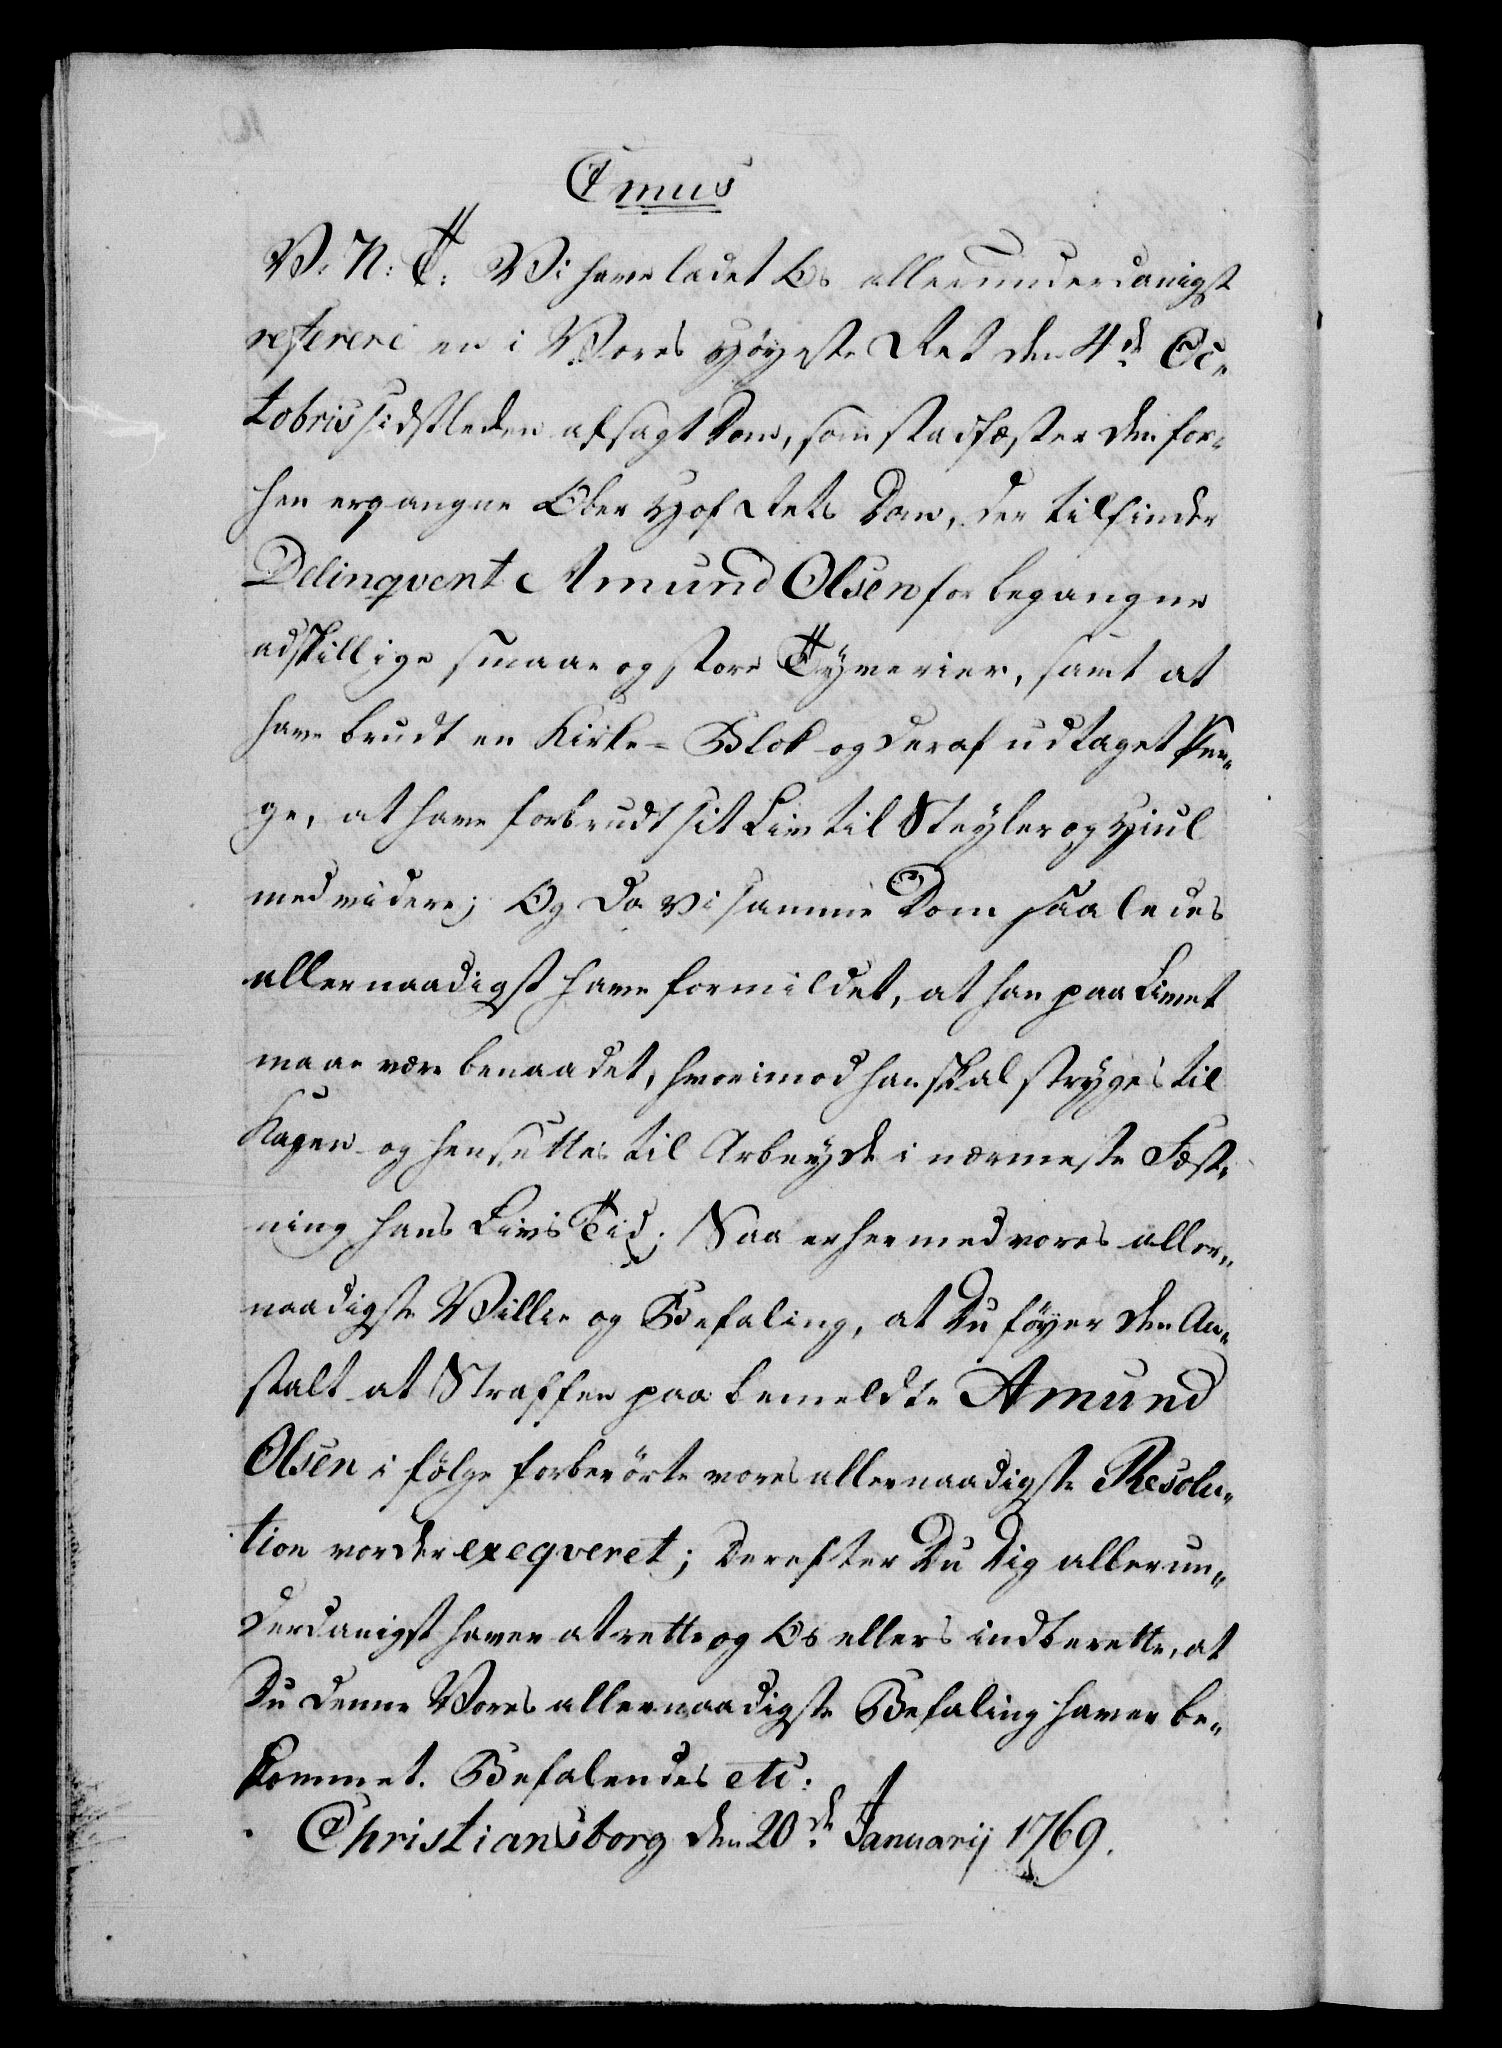 Cmus
V. N. T. Vi have ladet Os allerunderdanigst
referere en i Vores Høyeste Ret den 4de Oc-
tobris sidstleden afsagt Dom, som stadfæster den for-
hen ergangne Ober Hof Rets Dom, der tilfinder
Delinqvent Amund Olsen for begangne
adskillige smaae og store Tyverier, samt at
have brudt en Kirke-Blok og deraf udtaget Pen-
ge, at have forbrudt sit Liv til Steyler og Hiul
med videre; Og da Vi samme Dom saaledes
allernaadigst have formildet, at han paa Livet
maae være benaadet, hvorimod han skal stryges til
Kagen og hensættes til Arbeyde i nærmeste Fæst-
ning hans Livs Tid; Saa er hermed vores aller-
naadigste Villie og Befaling, at Du føyer den An-
stalt at Straffen paa bemeldte Amund
Olsen i følge forberørte vores allernaadigste Resolu-
tion vorder exeqveret; Derefter Du Dig allerun-
derdanigst haver at rette og Os ellers indberette, at
Du denne Vores allernaadigste Befaling haver be-
kommet. Befalendes etc:
Christiansborg den 20de Januarij 1769.